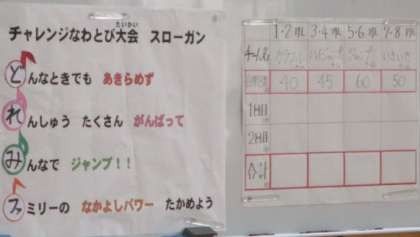 チャレンジなわとび大会 スローガン
たいかい
どんなときでも あきらめず
れんしゅう たくさん がんばって
みんなで ジャンプ！！
ファミリーの なかよしパワー たかめよう
1・2班 3・4班 5・6班 7・8班
チーム名
40 45 60 50
1回目
2回目
合計